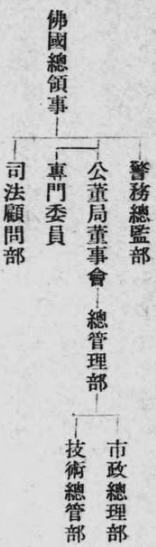 佛國總領事
警務總監部
公董局董事會
總管理部
市政總理部
技術總管部
專門委員
司法顧問部